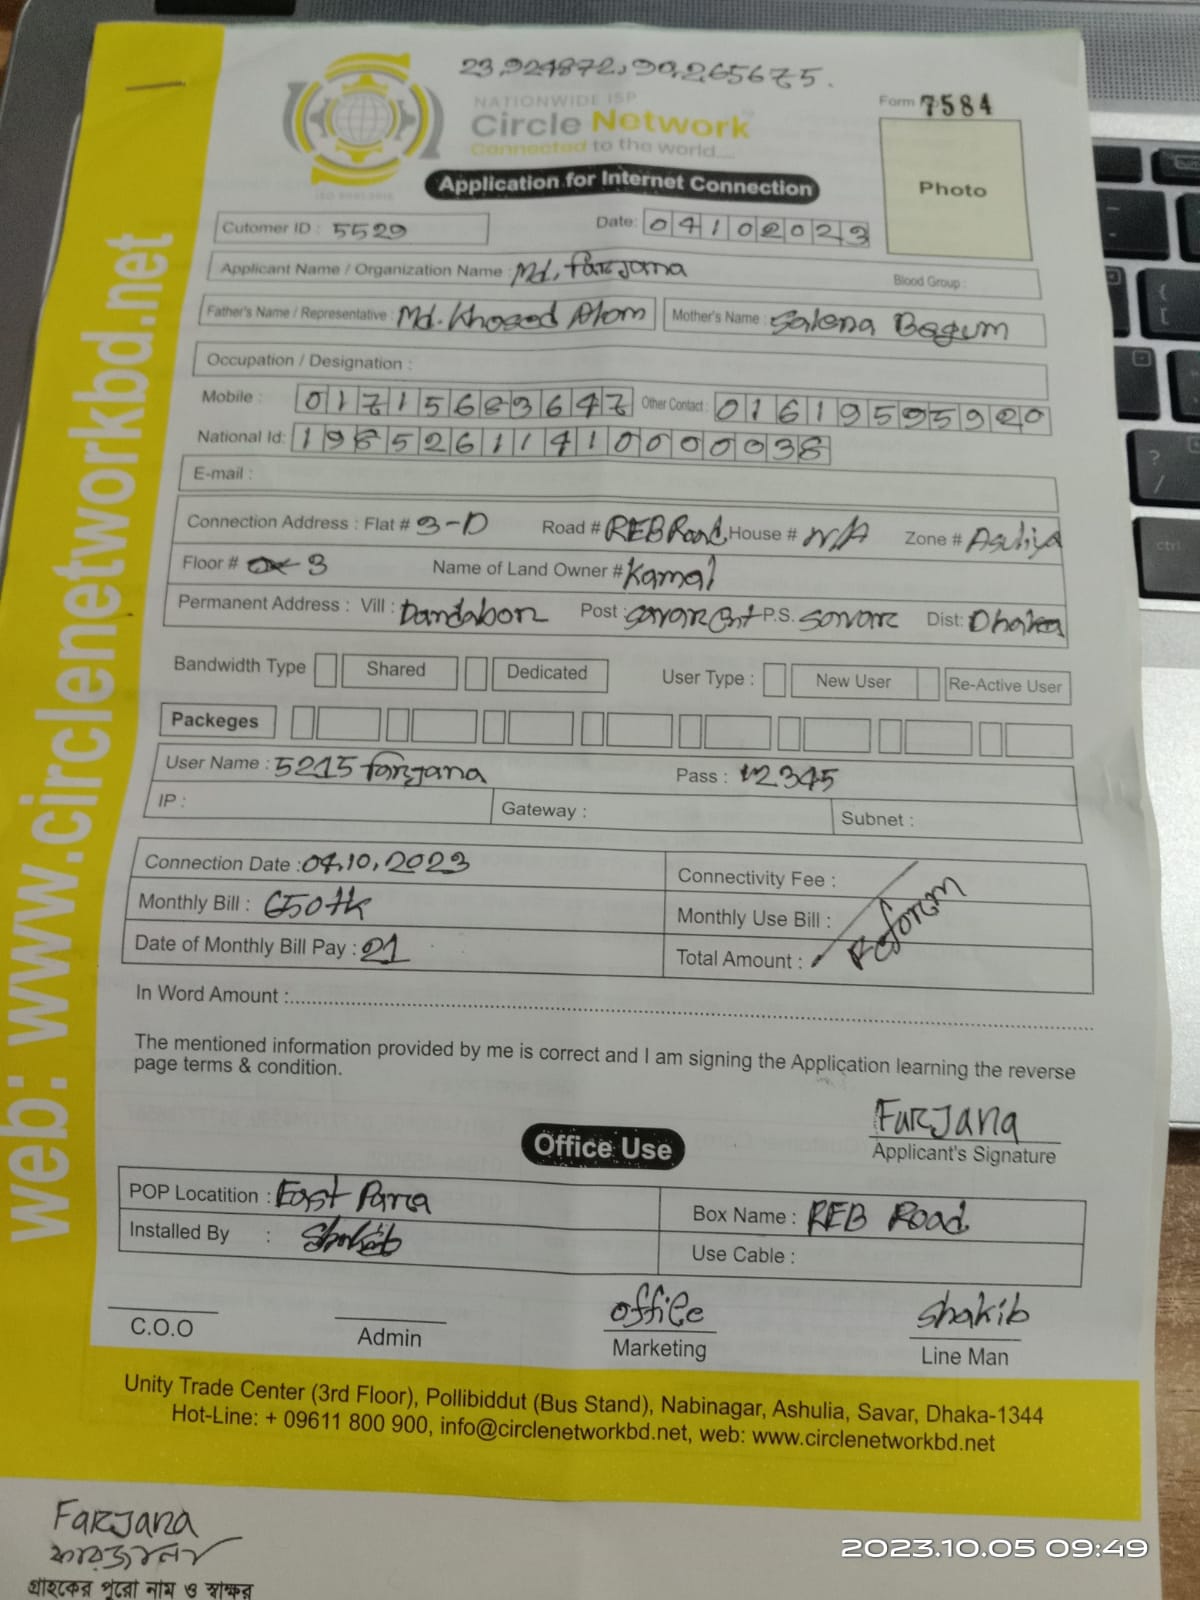 23.924872, 90.265675.
NATIONWIDE ISP
Circle Network
Connected to the world....
Form 7584
Photo
Application for Internet Connection
Cutomer ID : 5529
Date: 04102023
Applicant Name / Organization Name : Md. Farjana
Blood Group :
Father's Name / Representative : Md. Khosed Alom Mother's Name : Salena Begum
Occupation / Designation :
Mobile : 01715683647 Other Contact : 01619595920
National Id: 19852611410000038
E-mail :
Connection Address : Flat # 3-D Road # REB Road House # N/A Zone # Asuliya
Floor # 3 Name of Land Owner # Kamal
Permanent Address : Vill : Dandabor Post : Savar Cnt P.S. Savar Dist: Dhaka
Bandwidth Type Shared Dedicated User Type : New User Re-Active User
Packeges
User Name : 5215 farjana Pass : 12345
IP : Gateway : Subnet :
Connection Date : 04.10.2023 Connectivity Fee :
Monthly Bill : 650 tk Monthly Use Bill :
Date of Monthly Bill Pay : 21 Total Amount :
Reform
In Word Amount :
The mentioned information provided by me is correct and I am signing the Application learning the reverse
page terms & condition.
Farjana
Applicant's Signature
Office Use
POP Locatition : East Para Box Name : REB Road
Installed By : Shakib Use Cable :
office shakib
C.O.O Admin Marketing Line Man
Unity Trade Center (3rd Floor), Pollibiddut (Bus Stand), Nabinagar, Ashulia, Savar, Dhaka-1344
Hot-Line: + 09611 800 900, info@circlenetworkbd.net, web: www.circlenetworkbd.net
web: www.circlenetworkbd.net
Farjana
গ্রাহকের পুরো নাম ও স্বাক্ষর
2023.10.05 09:49